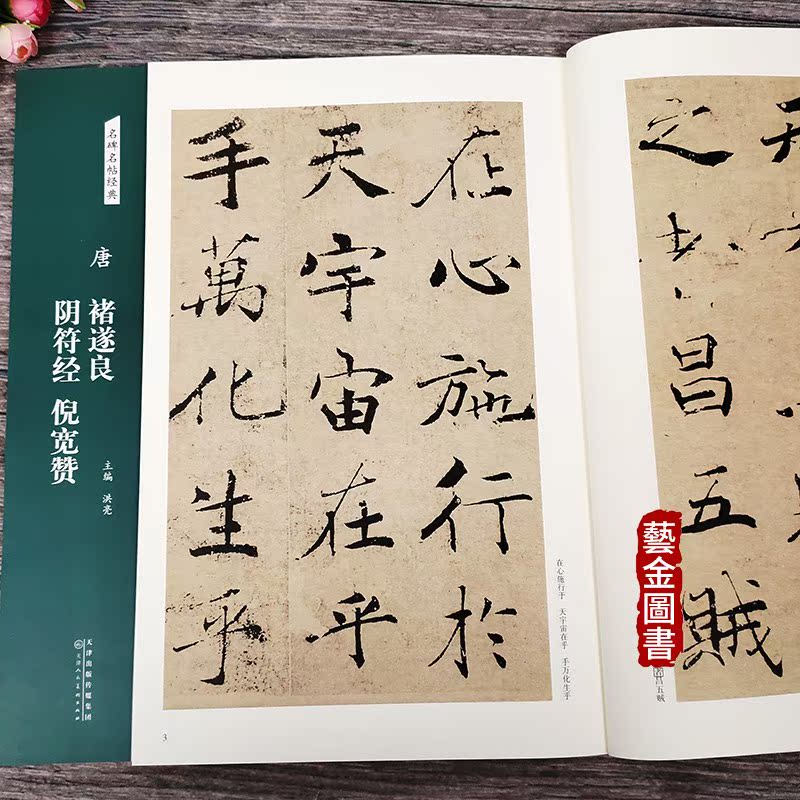 名碑名帖经典
唐
褚遂良
阴符经 倪宽赞
主编 洪亮
天津出版传媒集团
天津人民美术出版社
之
昌五賊
昌五贼
在心施行於
天宇宙在乎
手萬化生乎
在心施行于 天宇宙在乎 手万化生乎
3
藝金圖書